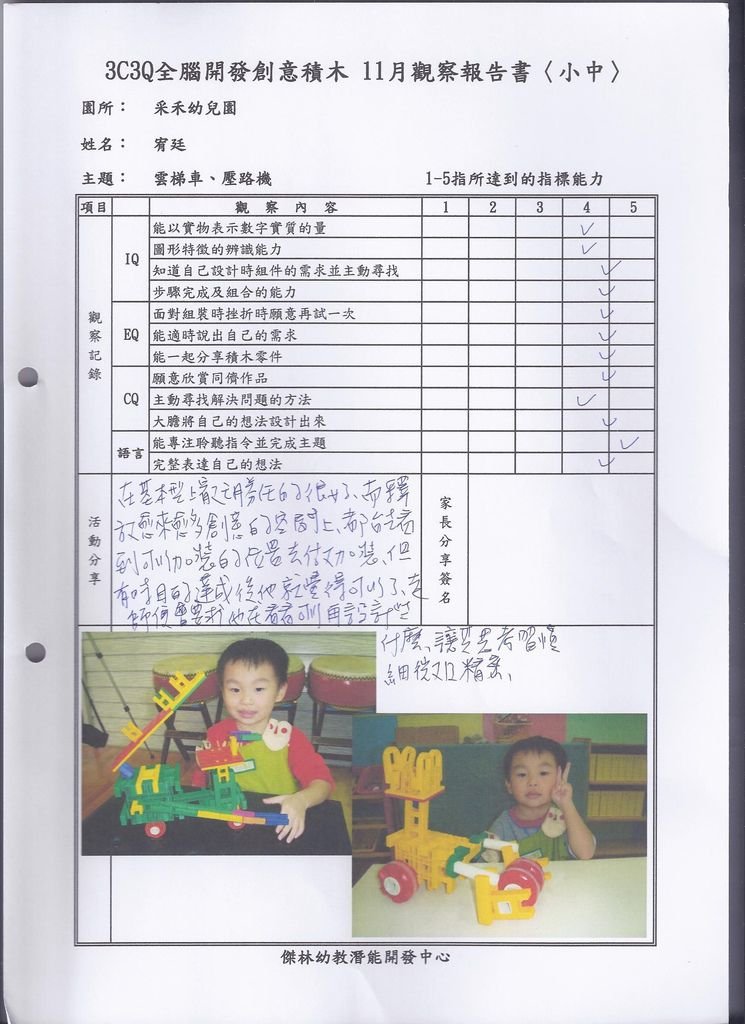 3C3Q全腦開發創意積木 11月觀察報告書〈小中〉
園所： 采禾幼兒園
姓名： 宥廷
主題： 雲梯車、壓路機 1-5指所達到的指標能力
項目 觀察內容 1 2 3 4 5
觀察記錄
IQ
能以實物表示數字實質的量 ✓
圖形特徵的辨識能力 ✓
知道自己設計時組件的需求並主動尋找 ✓
步驟完成及組合的能力 ✓
EQ
面對組裝時挫折時願意再試一次 ✓
能適時說出自己的需求 ✓
能一起分享積木零件 ✓
CQ
願意欣賞同儕作品 ✓
主動尋找解決問題的方法 ✓
大膽將自己的想法設計出來 ✓
語言
能專注聆聽指令並完成主題 ✓
完整表達自己的想法 ✓
活動分享
在基本型上敢勝任的很好、而釋
放愈來愈多創意的空間上、都能看
到可以加裝的位置去做加裝、但
有時目的達成後他就覺得可以了、老
師便會要求他在看看可以再設計些
什麼、讓其思考習慣
細微又精密、
家長分享簽名
傑林幼教潛能開發中心